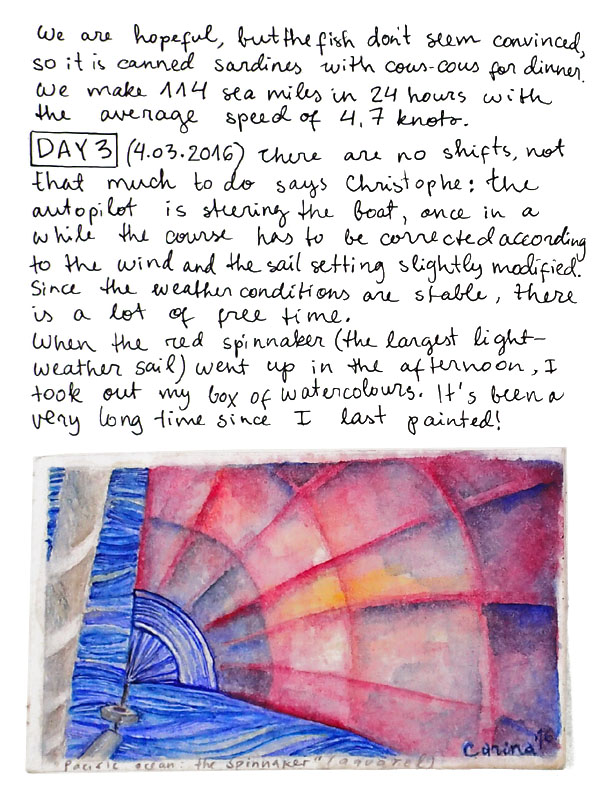 We are hopeful, but the fish don't seem convinced,
so it is canned sardines with cous-cous for dinner.
We make 114 sea miles in 24 hours with
the average speed of 4,7 knots.
DAY 3 (4.03.2016) There are no shifts, not
that much to do says Christophe: the
autopilot is steering the boat, once in a
while the course has to be corrected according
to the wind and the sail setting slightly modified.
Since the weather conditions are stable, there
is a lot of free time.
When the red spinnaker (the largest light-
weather sail) went up in the afternoon, I
took out my box of watercolours. It's been a
very long time since I last painted!
Carina '16
"Pacific ocean: the spinnaker" (aquarel)